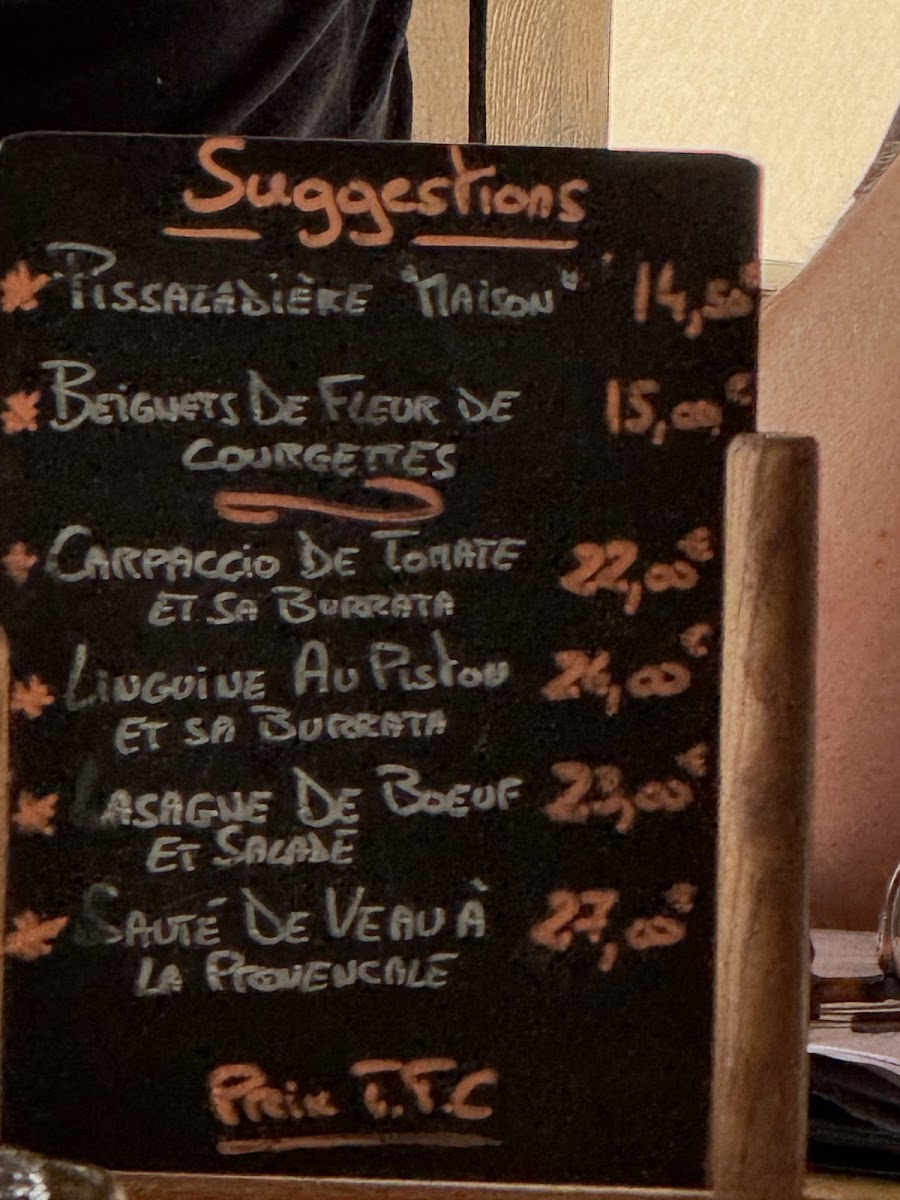 Suggestions
PISSALADIÈRE "MAISON" 14,50€
BEIGNETS DE FLEUR DE 15,00€
COURGETTES
CARPACCIO DE TOMATE 22,00€
ET SA BURRATA
LINGUINE AU PISTOU 24,00€
ET SA BURRATA
LASAGNE DE BOEUF 23,00€
ET SALADE
SAUTÉ DE VEAU À 27,00€
LA PROVENCALE
Prix T.T.C